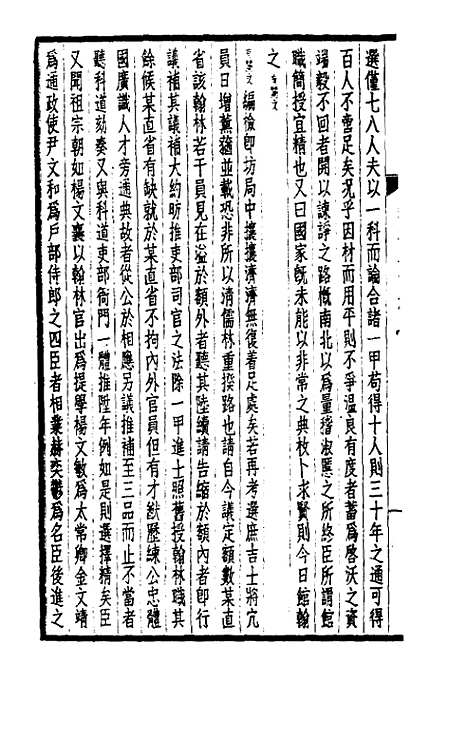 選僅七八人夫以一科而論合諸一甲苟得十人則三十年之通可得
百人不啻足矣况乎因材而用平則不爭溫良有度者蓄爲啓沃之資
端毅不回者開以諫諍之路概南北以爲量稽淑慝之所終臣所謂館
職簡授宜精也又曰國家旣未能以非常之典枚卜求賢則今日館翰
之
編檢卽坊局中攘攘濟濟無復着足處矣若再考選庶吉士將宂
員日增薰蕕並載恐非所以清儒林重揆路也請自今議定額數某直
省該翰林若干員見在溢於額外者聽其陸續請告縮於額內者卽行
議補其議補大約昉推吏部司官之法除一甲進士照舊授翰林職其
餘候某直省有缺就於某直省不拘內外官員但有才猷歷練公忠體
國廣識人才旁通典故者從公於相應另議推補至三品而止不當者
聽科道劾奏又與科道吏部衙門一體推陞年例如是則選擇精矣臣
又聞祖宗朝如楊文襄以翰林官出爲提學楊文敏爲太常卿金文靖
爲通政使尹文和爲戶部侍郎之四臣者相業赫奕鬱爲名臣後進之